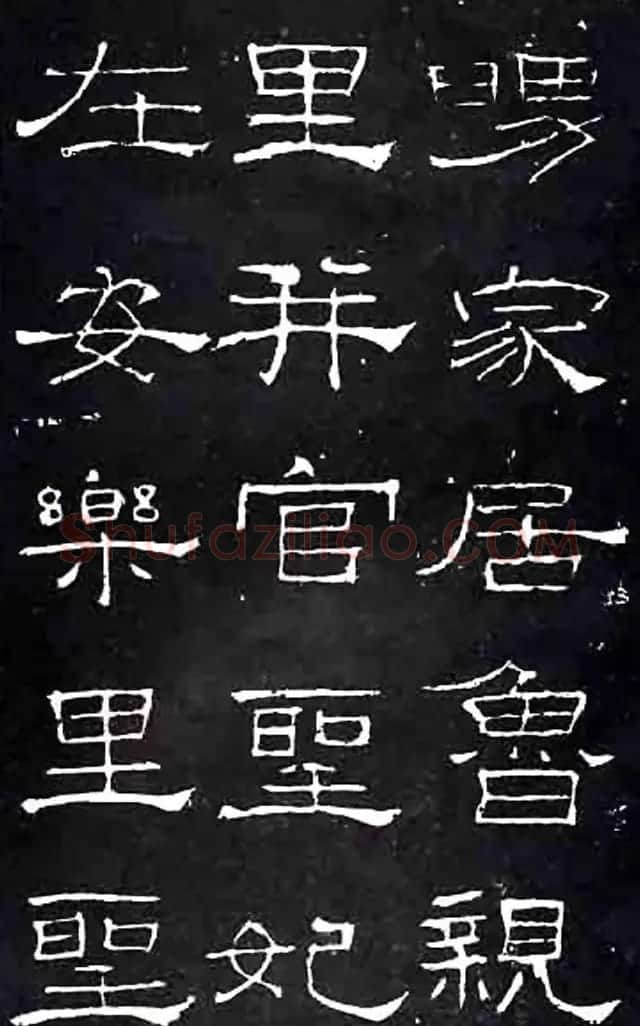 舅家居魯親
里并官聖妃
在安樂里聖
Shufaziliao.COM